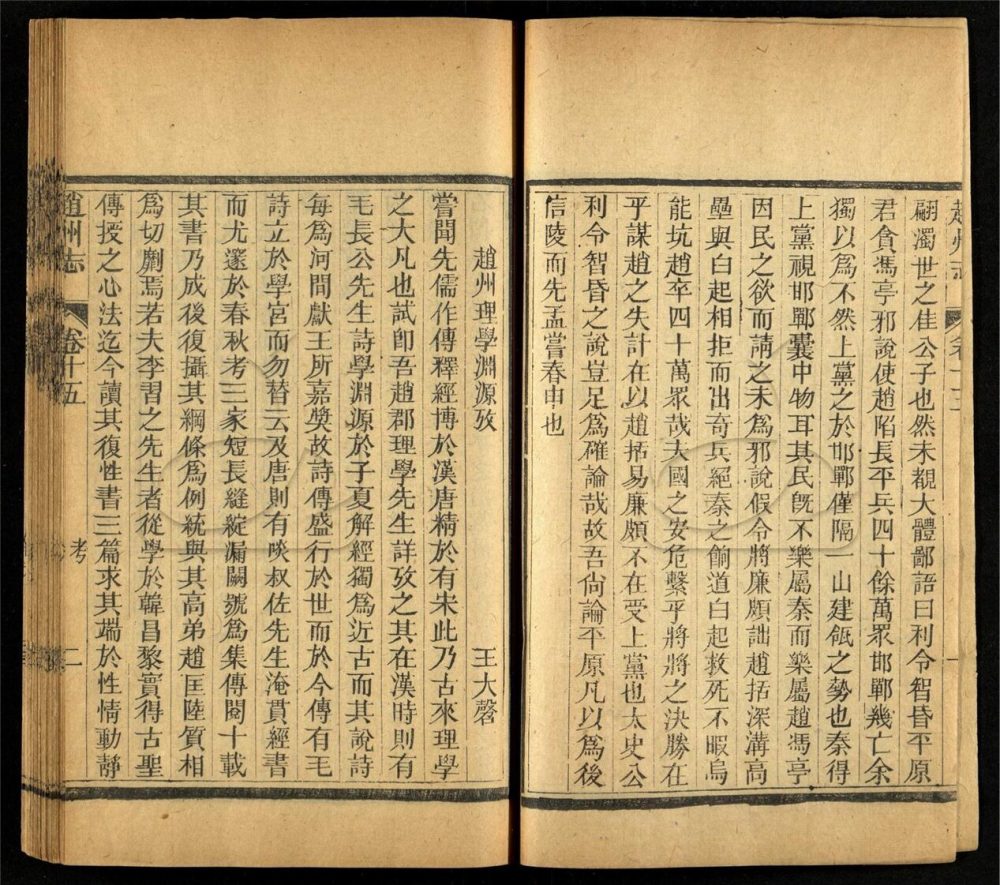 趙州志
翩濁世之佳公子也然未覩大體鄙語曰利令智昏平原
君貪馮亭邪說使趙陷長平兵四十餘萬眾邯鄲幾亡余
獨以爲不然上黨之於邯鄲僅隔一山建瓴之勢也秦得
上黨視邯鄲囊中物耳其民旣不樂屬秦而樂屬趙馮亭
因民之欲而請之未爲邪說假令將廉頗詘趙括深溝高
壘與白起相拒而出奇兵絕秦之餉道白起救死不暇烏
能坑趙卒四十萬眾哉大國之安危繫乎將將之決勝在
乎謀趙之失計在以趙括易廉頗不在受上黨也太史公
利令智昏之說豈足爲確論哉故吾尙論平原凡以爲後
信陵而先孟嘗春申也
趙州理學淵源攷
王大磬
嘗聞先儒作傳釋經博於漢唐精於有宋此乃古來理學
之大凡也試卽吾趙郡理學先生詳攷之其在漢時則有
毛長公先生詩學淵源於子夏解經獨爲近古而其說詩
每爲河間獻王所嘉獎故詩傳盛行於世而於今傳有毛
詩立於學宮而勿替云及唐則有啖叔佐先生淹貫經書
而尤邃於春秋考三家短長縫綻漏闕號爲集傳閱十載
其書乃成後復攝其綱條爲例統與其高弟趙匡陸質相
爲切劘焉若夫李習之先生者從學於韓昌黎實得古聖
傳授之心法迄今讀其復性書三篇求其端於性情動靜
趙州志
卷十五
考
二